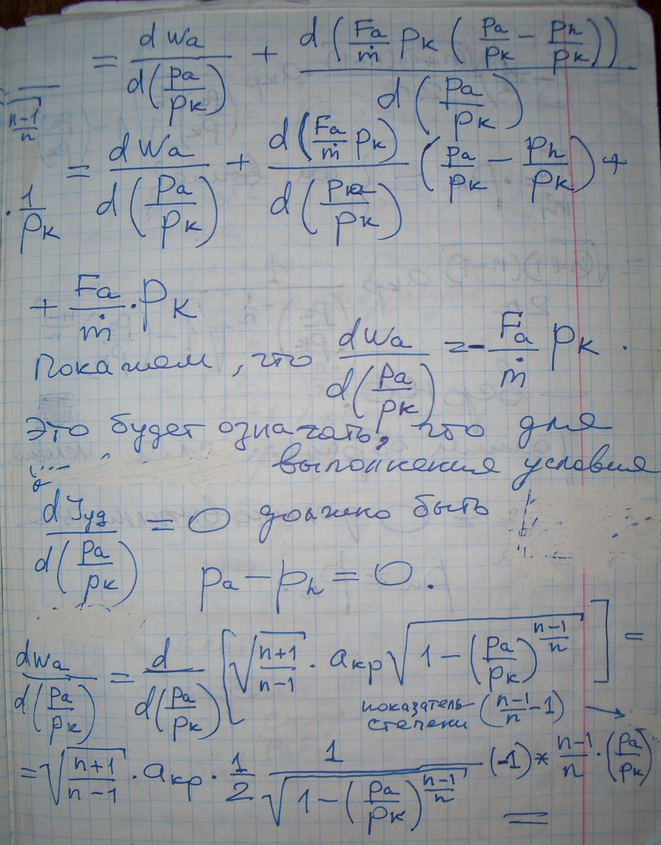 = d Wa / d(pa/pк) + d(Fa/ṁ pк (pa/pк − ph/pк)) / d(pa/pк)
n-1/n
· 1/pк = d Wa / d(pa/pк) + d(Fa/ṁ pк) / d(pа/pк) (pa/pк − ph/pк) +
+ Fa/ṁ · Pк
Покажем, что dWa / d(pa/pк) = - Fa/ṁ pк .
Это будет означать, что для
выполнения условия
dJуд / d(pa/pк) = 0 должно быть
pa − ph = 0.
dWa / d(pa/pк) = d / d(pa/pк) [ √(n+1/n-1) · aкр √(1 − (pa/pк)^(n-1/n)) ] =
показатель степени (n-1/n − 1) →
= √(n+1/n-1) · aкр · 1/2 · 1 / √(1 − (pa/pк)^(n-1/n)) (-1) * n-1/n · (pa/pк)
=